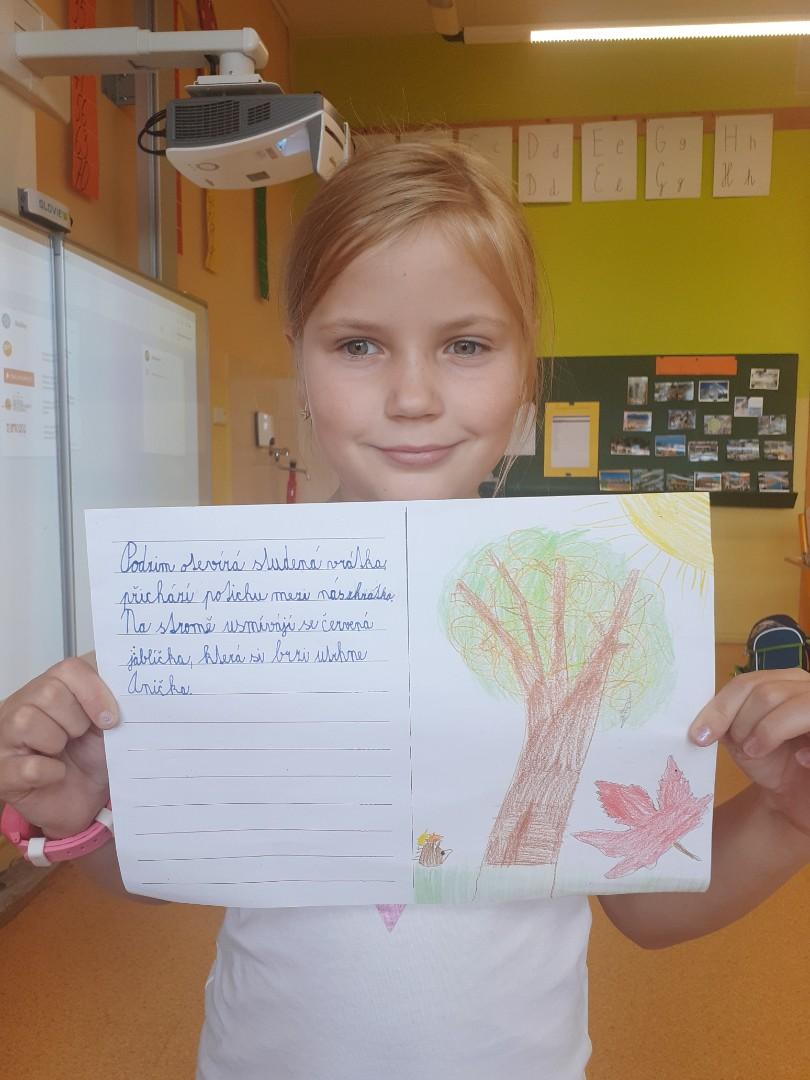 GLOVIEW
C c
D d
D d
E e
E e
G g
G g
H h
H h
Podzim otevírá studená vrátka,
přichází potichu mezi nás zkrátka.
Na stromě usmívají se červená
jablíčka, která si brzi utrhne
Anička.